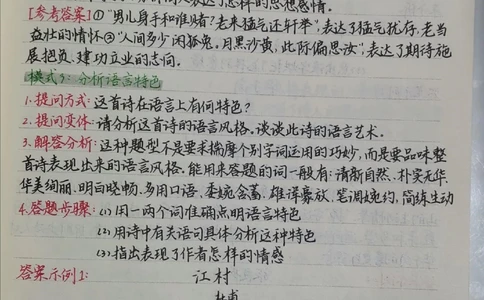 表达了怎样的思想感情。
[参考答案]①"男儿身手和谁赌?老来猛气还轩举",表达了猛气犹存,老当
益壮的情怀③"人间多少闲狐兔。月黑沙黄,此际偏思汝",表达了期待施
展抱负、建功立业的志向。
模式3:分析语言特色
1.提问方式:这首诗在语言上有何特色?
2.提问变体:请分析这首诗的语言风格。谈谈此诗的语言艺术。
3.解答分析:这种题型不是要求揣摩个别字词运用的巧妙,而是要品味整
首诗表现出来的语言风格。能用来答题的词一般有:清新自然、朴实无华、
华美绚丽、明白晓畅、多用口语、委婉含蓄、雄浑豪放、笔调婉约、简练生动
4.答题步骤:(1)用一两个词准确点明语言特色
(2)用诗中有关语句具体分析这种特色
(3)指出表现了作者怎样的情感
答案示例1: 江村
杜甫